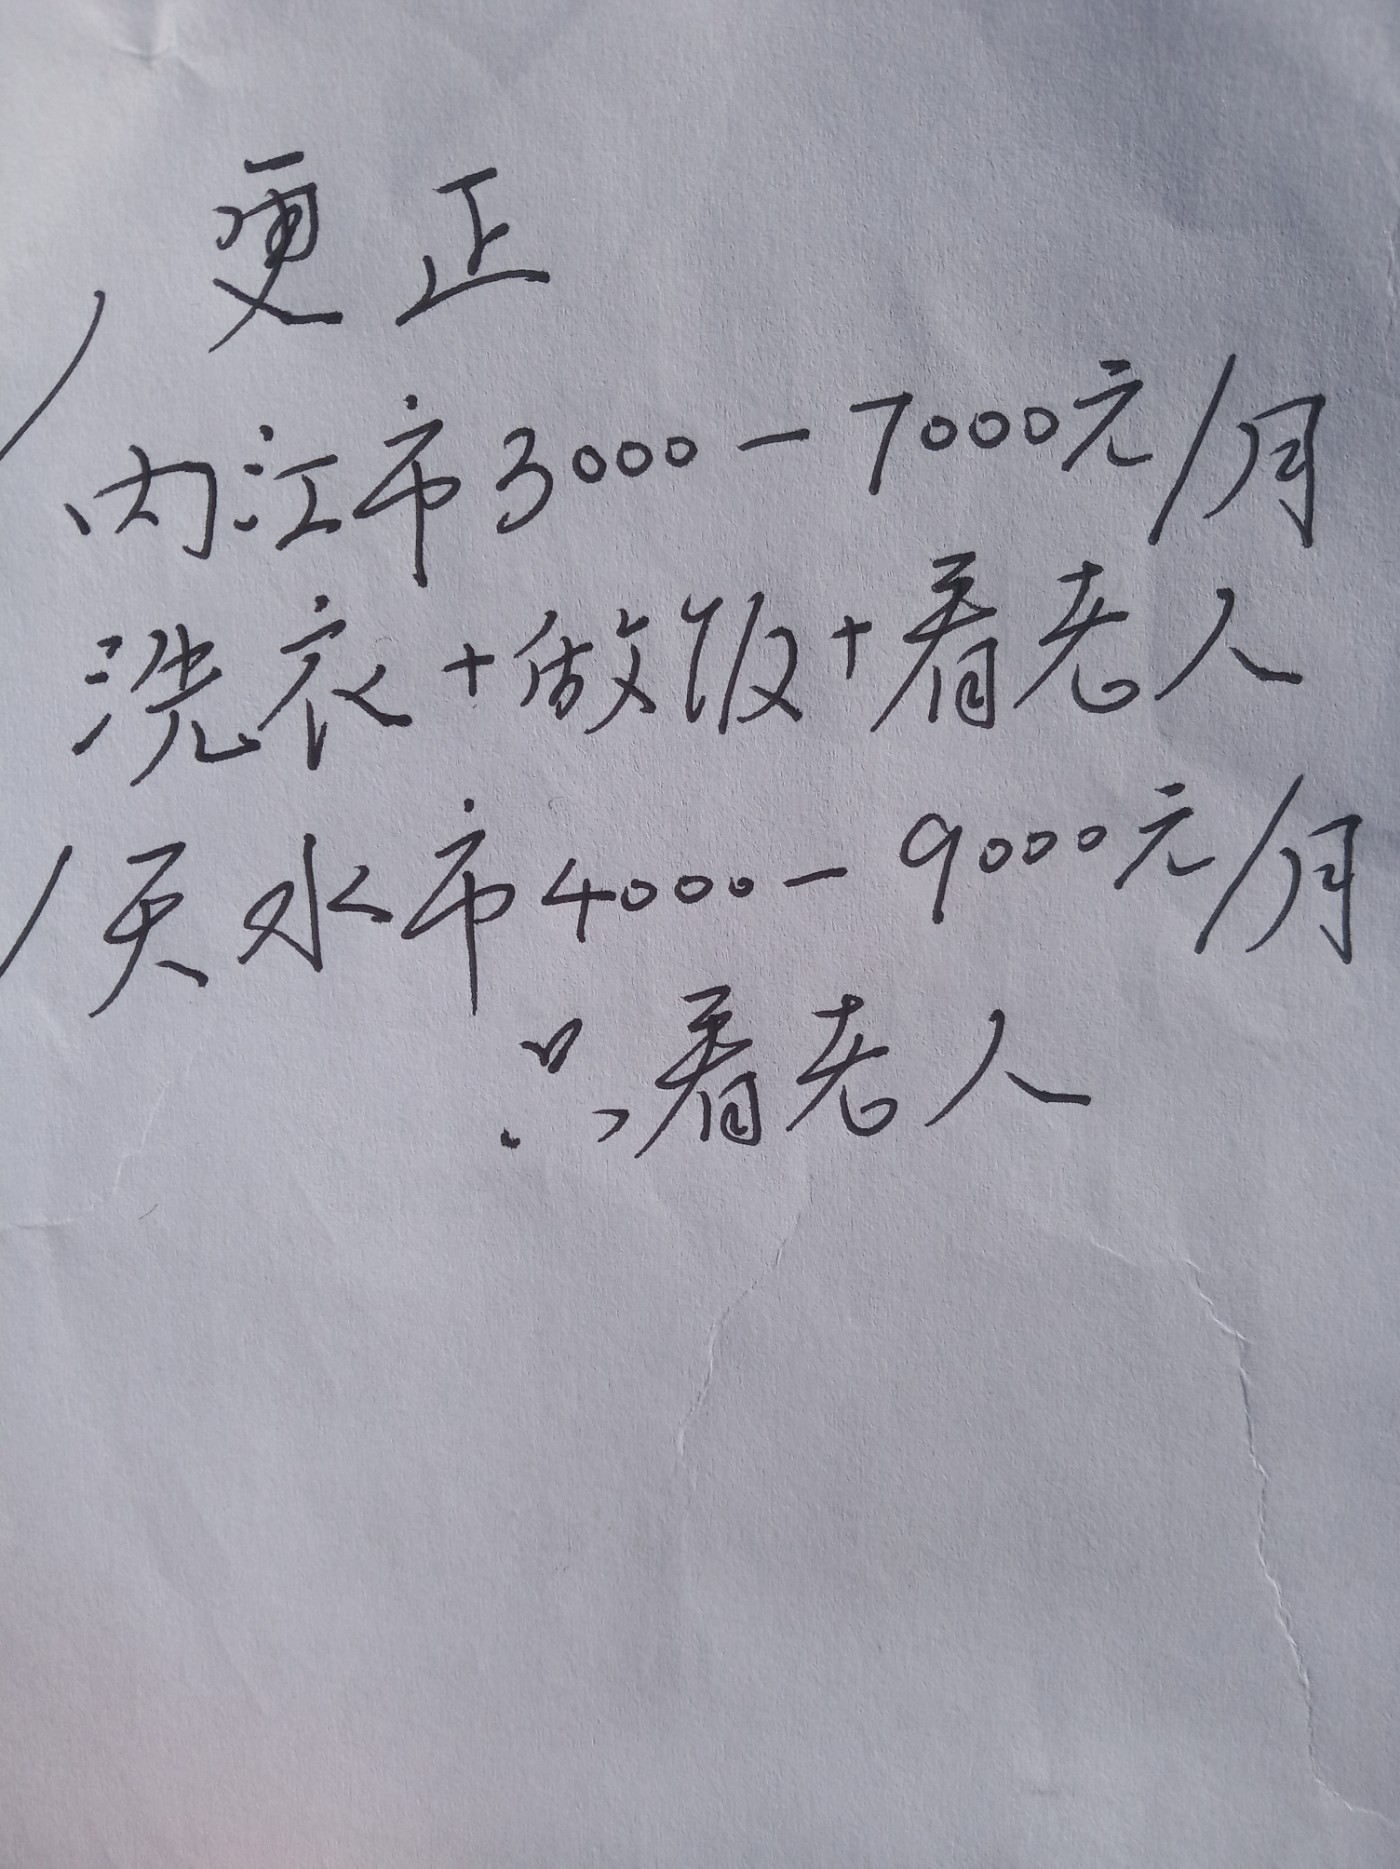 更正
内江市3000-7000元/月
洗衣+做饭+看老人
天水市4000-9000元/月
只看老人